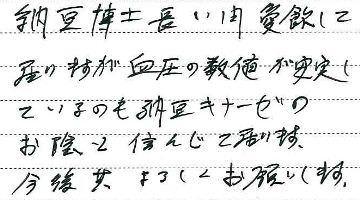 納豆博士長い間愛飲して
居りますが血圧の数値が安定し
ているのも納豆キナーゼの
お陰と信んじて居ります、
今後共よろしくお願いします。